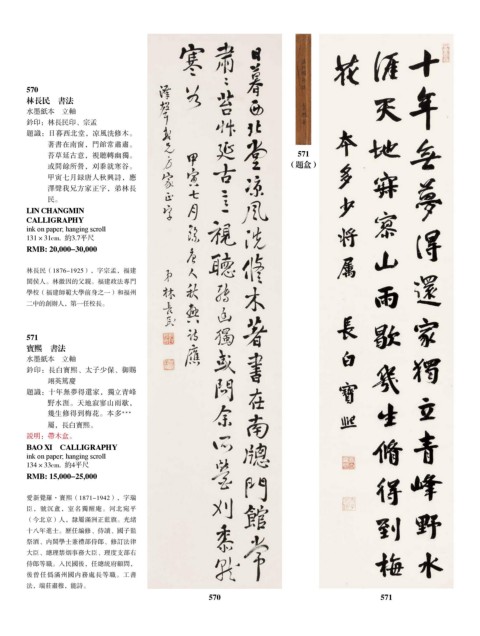 570
林長民 書法
水墨紙本 立軸
鈐印：林長民印、宗孟
題識：日暮西北堂，涼風洗修木。
著書在南窗，門館常肅肅。
苔草延古意，視聽轉幽獨。
或問余所營，刈黍就寒谷。
甲寅七月録唐人秋興詩，應
澤聲我兄方家正字，弟林長
民。
LIN CHANGMIN
CALLIGRAPHY
ink on paper; hanging scroll
131×31cm. 約3.7平尺
RMB: 20,000–30,000
林長民（1876-1925），字宗孟，福建
閩侯人，林徽因的父親。福建政法專門
學校（福建師範大學前身之一）和福州
二中的創辦人，第一任校長。
571
寳熙 書法
水墨紙本 立軸
鈐印：長白寳熙、太子少保、御賜
翊英篤慶
題識：十年無夢得還家，獨立青峰
野水涯。天地寂寥山雨歇，
幾生修得到梅花。本多***
屬，長白寳熙。
説明：帶木盒。
BAO XI CALLIGRAPHY
ink on paper; hanging scroll
134×33cm. 約4平尺
RMB: 15,000–25,000
愛新覺羅·寳熙（1871-1942），字瑞
臣，號沉盦，室名獨醒庵。河北宛平
（今北京）人，隸屬滿洲正藍旗。光緒
十八年進士。歷任編修、侍讀、國子監
祭酒、内閣學士兼禮部侍郎、修訂法律
大臣、總理禁烟事務大臣、理度支部右
侍郎等職。入民國後，任總統府顧問，
後曾任僞滿州國内務處長等職。工書
法，端莊肅雅，能詩。
日暮西北堂涼風洗修木著書在南牕門館常
肅肅苔草延古意視聽轉幽獨或問余所營刈黍就
寒谷
甲寅七月録唐人秋興詩應
澤聲我兄方家正字
弟林長民
570
571
（題盒）
十年無夢得還家獨立青峰野水
涯天地寂寥山雨歇幾生脩得到梅
花
本多少將屬
長白寶熙
571